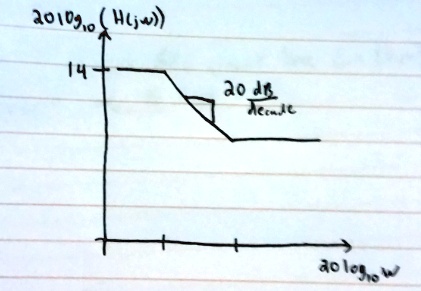 20log₁₀(H(jw))
14
20 dB
decade
20log₁₀w